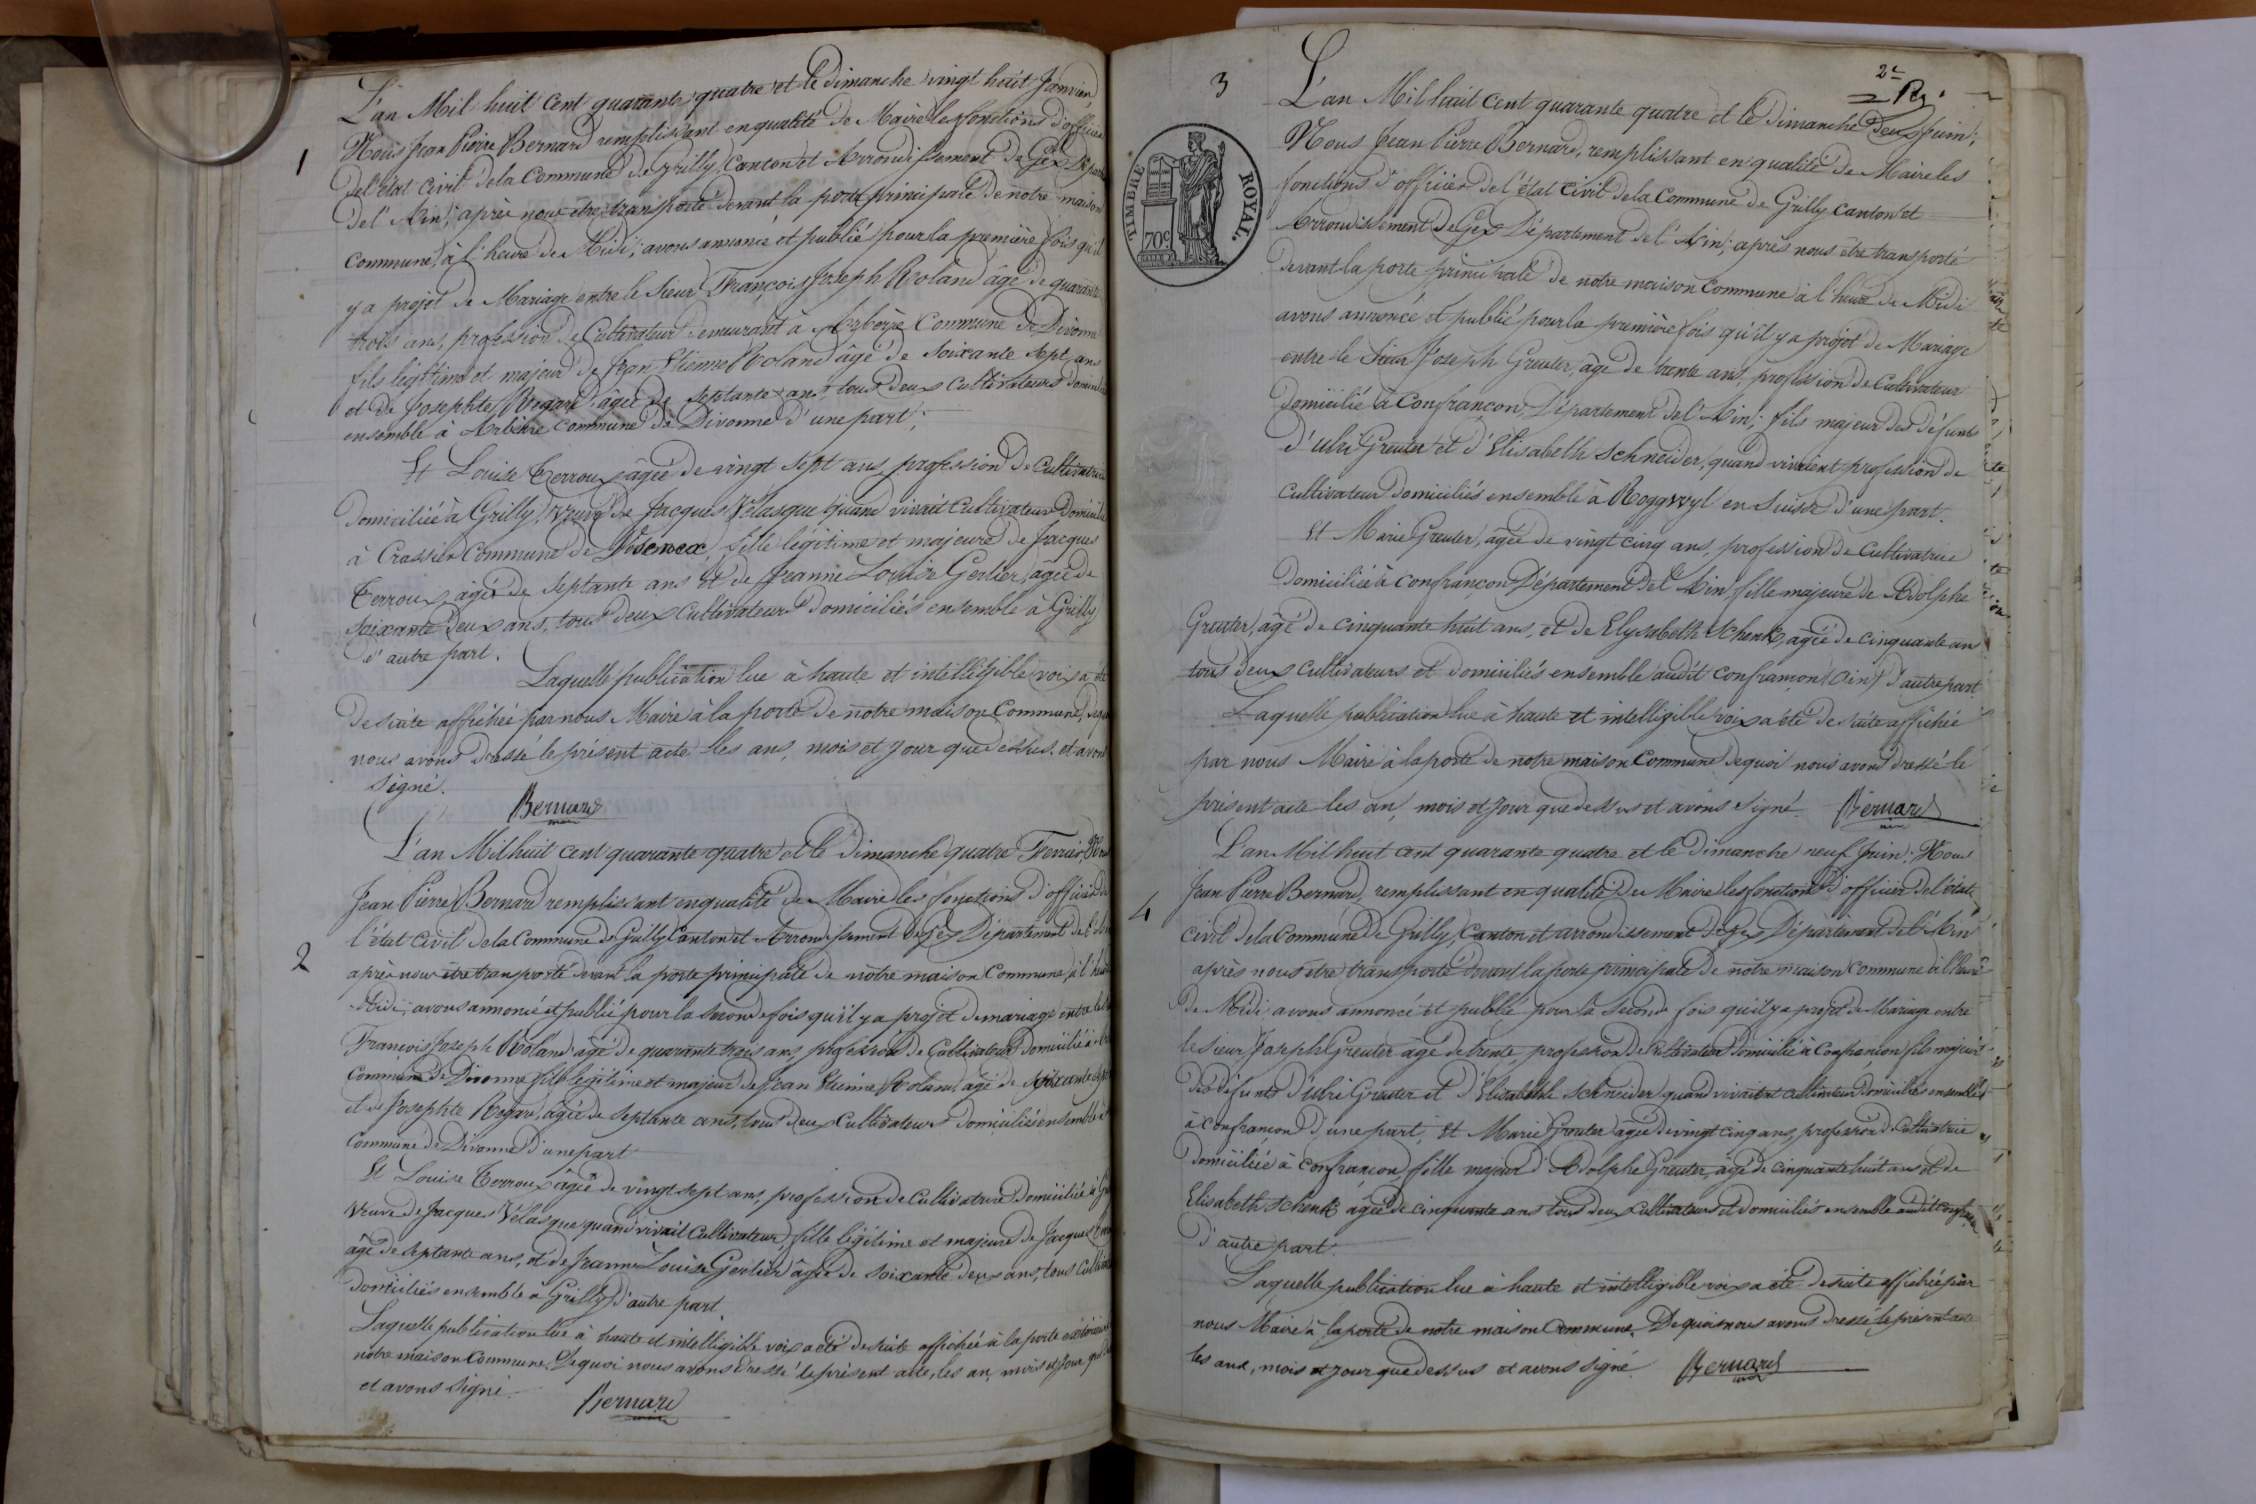 1
L'an Mil huit cent quarante quatre et le dimanche vingt huit Janvier,
Nous Jean Pierre Bernard remplissant en qualité de Maire les fonctions d'officier
de l'état civil de la Commune de Grilly, Canton et Arrondissement de Gex Dépar
de l'Ain; après nous être transporté devant la porte principale de notre maison
commune, à l'heure de Midi; avons annoncé et publié pour la première fois qu'il
y a projet de Mariage entre le Sieur François Joseph Roland âgé de quarante
trois ans, profession de Cultivateur demeurant à Arbère Commune de Divonne
fils légitime et majeur de Jean Etienne Roland âgé de soixante sept ans
et de Josephte Regard âgée de septante ans, tous deux Cultivateurs
ensemble à Arbère commune de Divonne d'une part;
Et Louise Terroux âgée de vingt sept ans profession de Cultivatrice
domiciliée à Grilly, Veuve de Jacques Vélasque quand vivait Cultivateur domicilié
à Crassier Commune de Vésenex, fille légitime et majeure de Jacques
Terroux, âgé de septante ans et de Jeanne Louise Gerlier, âgée de
soixante deux ans, tous deux Cultivateurs domiciliés ensemble à Grilly
d'autre part.
Laquelle publication lue à haute et intelligible voix a été
de suite affichée par nous Maire à la porte de notre maison Commune,
nous avons dressé le présent acte les ans, mois et jour que dessus, et avons
signé.
Bernard
2
L'an Mil huit cent quarante quatre et le dimanche quatre Fevrier, Nous
Jean Pierre Bernard remplissant en qualité de Maire les fonctions d'officier de
l'état civil de la Commune de Grilly Canton et Arrondissement de Gex Département de l'Ain
après nous être transporté devant la porte principale de notre maison Commune, à l'heure
Midi, avons annoncé et publié pour la seconde fois qu'il y a projet de mariage entre le
François Joseph Roland âgé de quarante trois ans, profession de Cultivateur domicilié à
Commune de Divonne fils légitime et majeur de Jean Etienne Roland âgé de soixante sept
et de Josephte Regard, âgée de septante ans, tous deux Cultivateurs domiciliés ensemble à
Commune de Divonne d'une part
Et Louise Terroux âgée de vingt sept ans, profession de Cultivatrice domiciliée à
Veuve de Jacques Vélasque quand vivait Cultivateur, fille légitime et majeure de Jacques
âgé de septante ans, et de Jeanne Louise Gerlier âgée de soixante deux ans, tous
domiciliés ensemble à Grilly d'autre part
Laquelle publication lue à haute et intelligible voix a été de suite affichée à la porte
notre maison Commune. De quoi nous avons dressé le présent acte, les an, mois et jour que
et avons signé.
Bernard
2e
3
TIMBRE ROYAL.
70c
L'an Mil huit cent quarante quatre et le dimanche deux Juin;
Nous Jean Pierre Bernard, remplissant en qualité de Maire les
fonctions d'officier de l'état civil de la Commune de Grilly canton et
Arrondissement de Gex Département de l'Ain; après nous être transporté
devant la porte principale de notre maison commune à l'heure de Midi
avons annoncé et publié pour la première fois qu'il y a projet de Mariage
entre le Sieur Joseph Greuter, âgé de trente ans, profession de Cultivateur
domicilié à Confrançon, Département de l'Ain; fils majeur des défunts
d'Ulri Greuter et d'Elisabeth Schneider, quand vivaient profession de
cultivateur domiciliés ensemble à Roggwyl en Suisse d'une part.
Et Marie Greuter, âgée de vingt cinq ans, profession de Cultivatrice
domiciliée à Confrançon Département de l'Ain, fille majeure de Adolphe
Greuter, âgé de cinquante huit ans, et de Elysabeth Schenk, âgée de cinquante an
tous deux cultivateurs et domiciliés ensemble audit Confrançon (Ain) d'autre part
Laquelle publication lue à haute et intelligible voix a été de suite affichée
par nous Maire à la porte de notre maison Commune de quoi nous avons dressé le
présent acte les an, mois et jour que dessus et avons signé. Bernard
4
L'an Mil huit cent quarante quatre et le dimanche neuf Juin; Nous
Jean Pierre Bernard, remplissant en qualité de Maire les fonctions d'officier de l'état
civil de la Commune de Grilly, Canton et arrondissement de Gex Département de l'Ain
après nous être transporté devant la porte principale de notre maison commune à l'heure
de Midi avons annoncé et publié pour la seconde fois qu'il y a projet de Mariage entre
le Sieur Joseph Greuter âgé de trente, profession de cultivateur domicilié à Confrançon fils majeur
des défunts d'Ulri Greuter et d'Elisabethe Schneider quand vivaient cultivateur domiciliés ensemble
à Confrançon d'une part, Et Marie Greuter âgée de vingt cinq ans, profession de Cultivatrice
domiciliée à Confrançon, fille majeur d'Adolphe Greuter, âgé de cinquante huit ans et de
Elisabeth Schenk âgée de cinquante ans tous deux cultivateurs et domiciliés ensemble audit
d'autre part.
Laquelle publication lue à haute et intelligible voix a été de suite affichée par
nous Maire à la porte de notre maison Commune. De quoi nous avons dressé le présent acte
les ans, mois et jour que dessus et avons signé. Bernard